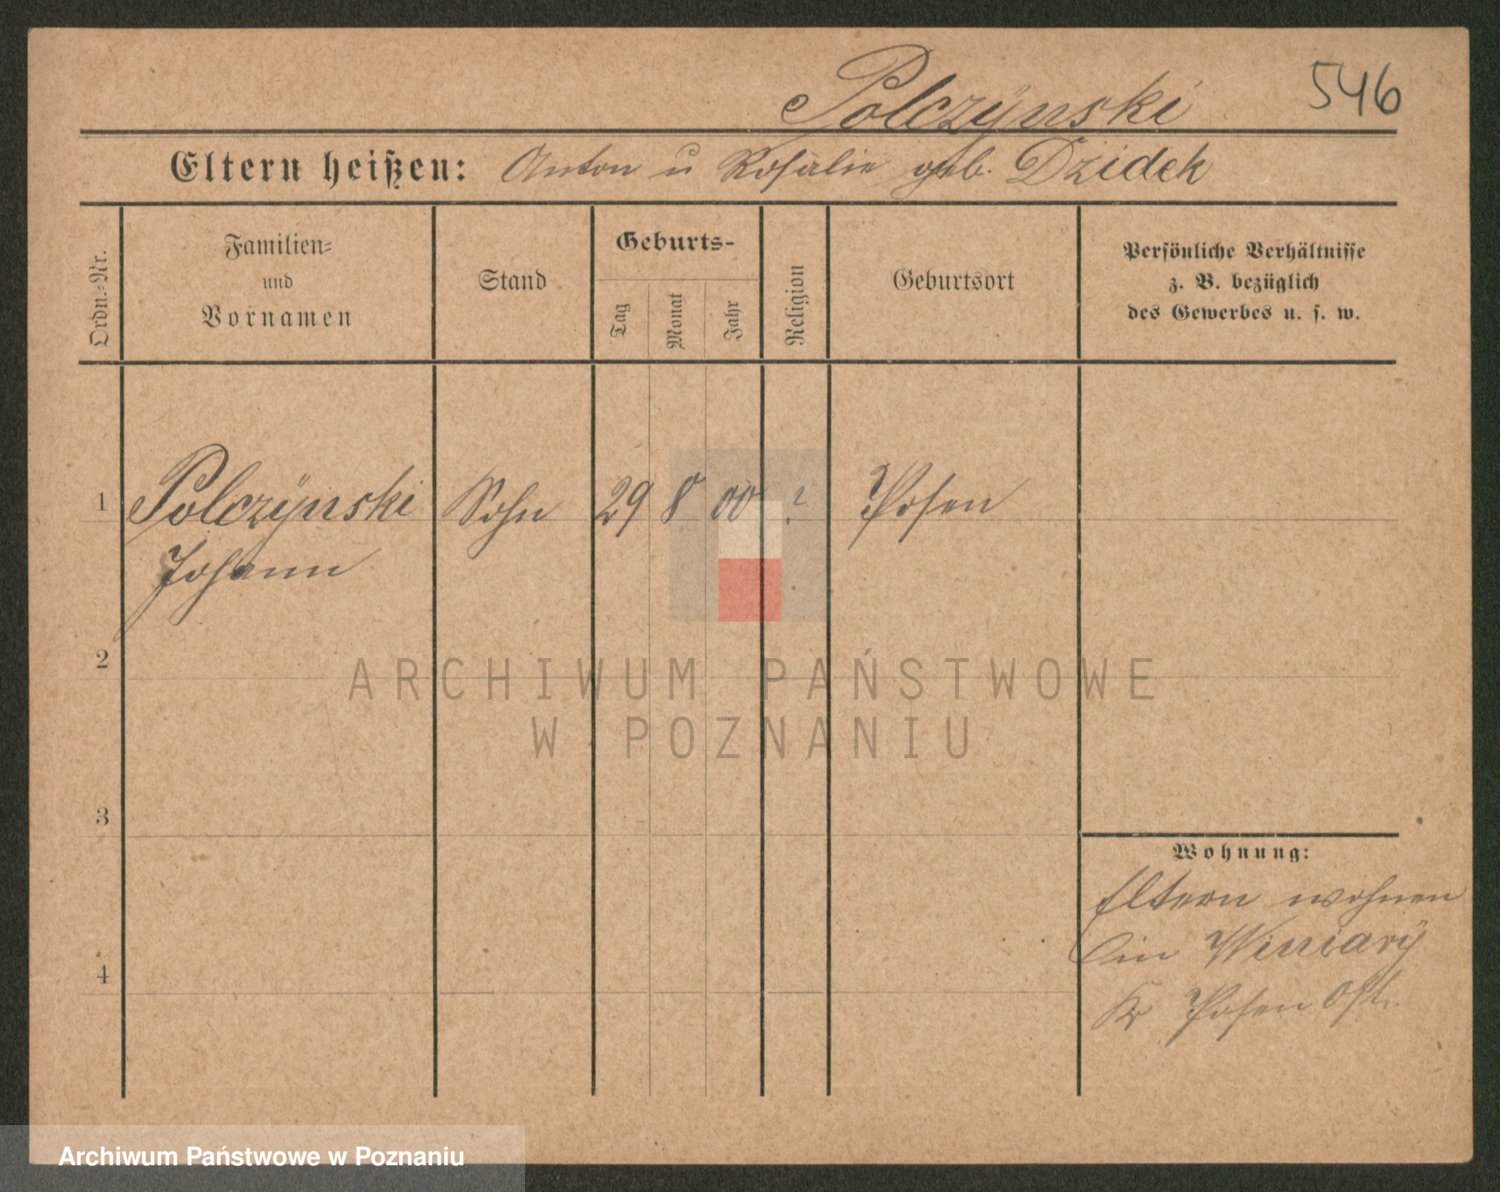 Polczÿnski
546
Eltern heißen: Anton u Rosalie geb. Dzidek
Ordn.-Nr.
Familien-
und
Vornamen
Stand
Geburts-
Tag
Monat
Jahr
Religion
Geburtsort
Persönliche Verhältnisse
z. B. bezüglich
des Gewerbes u. s. w.
1 Polczÿnski Sohn 29 8 00 ? Posen
Johann
2
ARCHIWUM PAŃSTWOWE
W POZNANIU
3
Wohnung:
Eltern wohnen
in Winiarÿ
4
Kr Posen Ost.
Archiwum Państwowe w Poznaniu